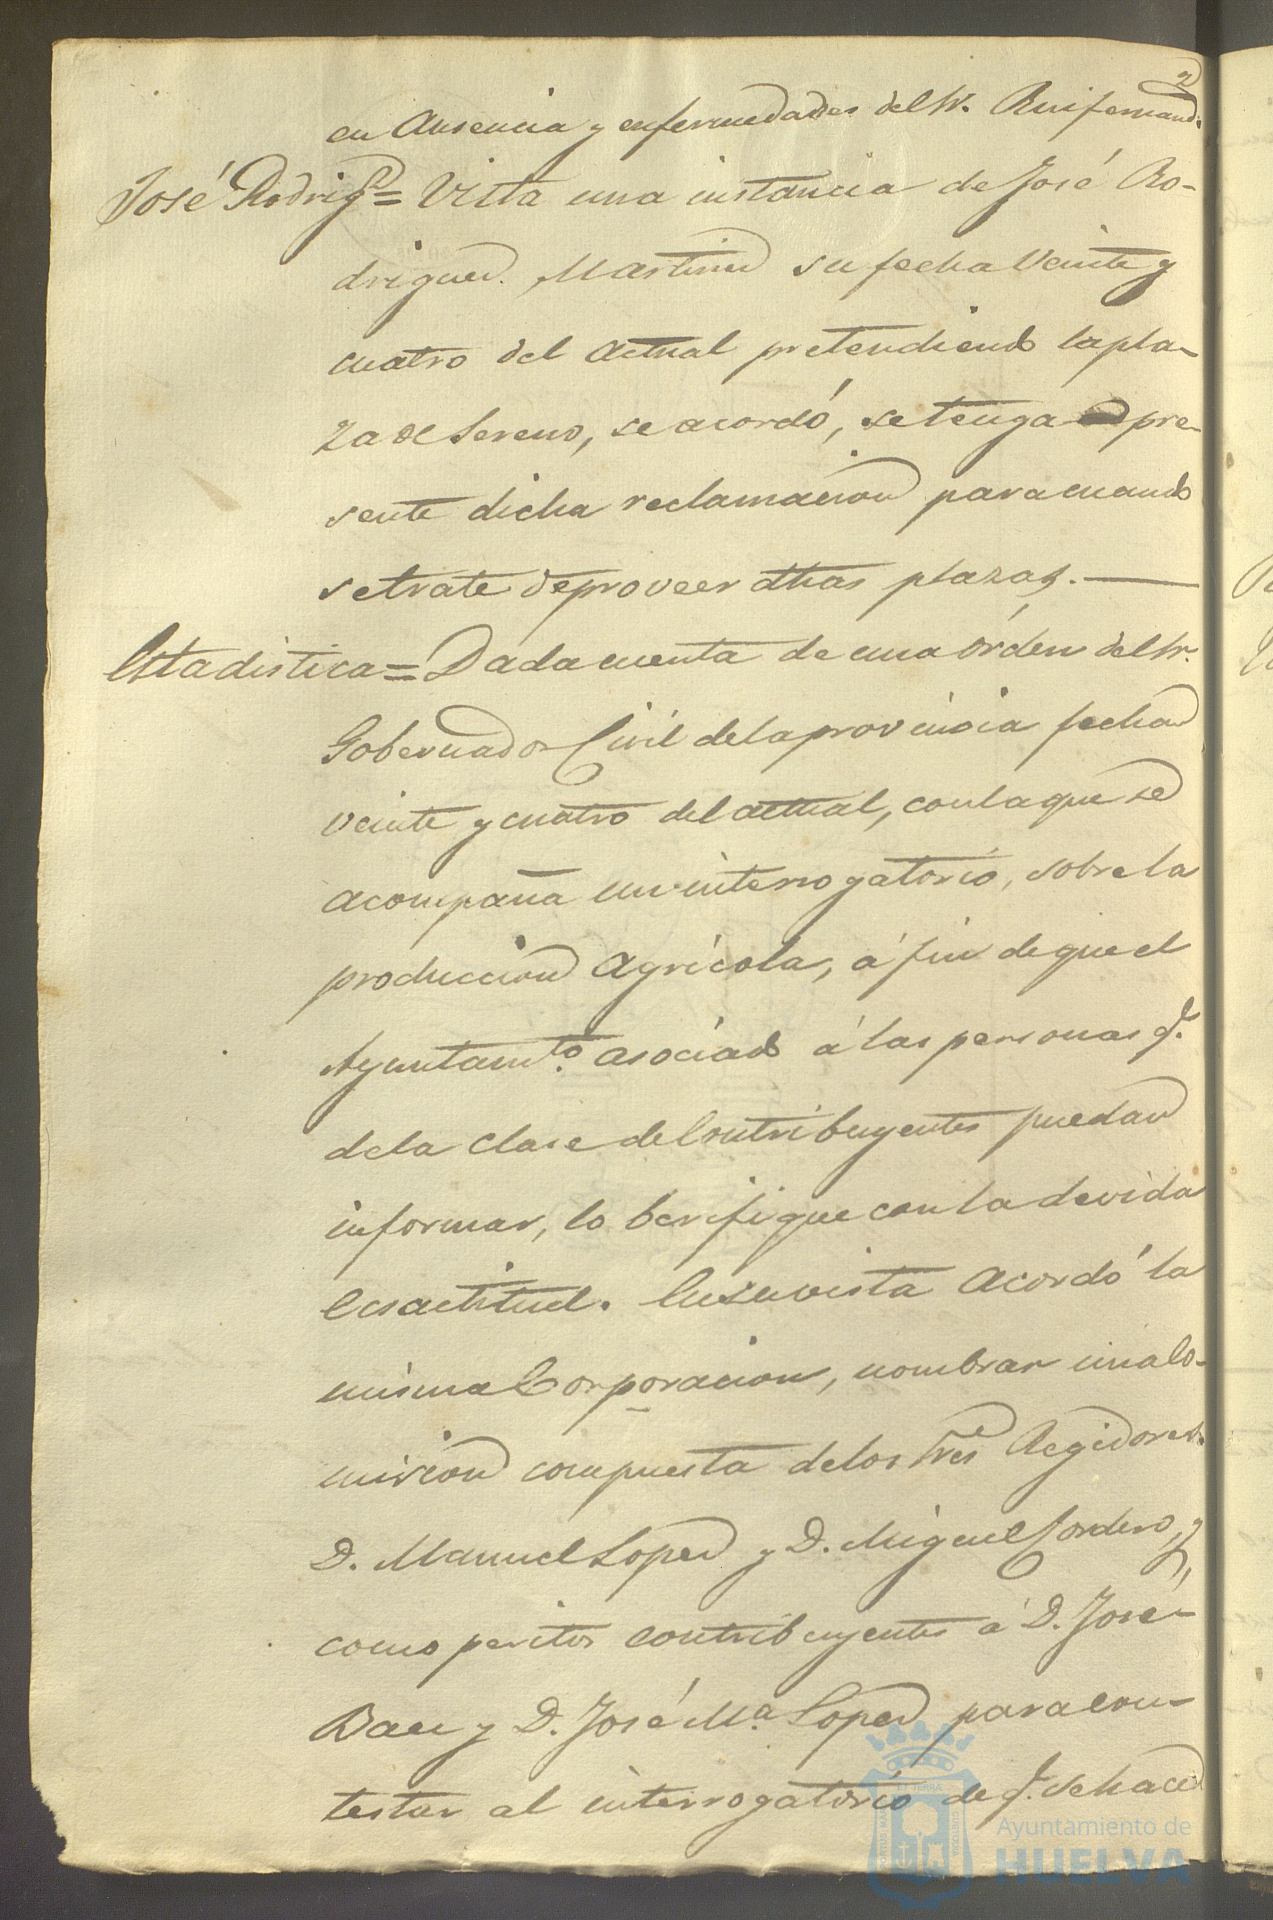 2
en Ausencia y enfermedades del Sr. Ruifernand.
José Rodrigz = Vista una instancia de José Ro-
driguez Martinez su fecha Veinte y
cuatro del actual pretendiendo la pla-
za de Sereno, se acordó, se tenga pre-
sente dicha reclamacion para cuando
se trate de proveer dhas plazas. —
Estadistica = Dada cuenta de una órden del Sr.
Gobernador Civil de la provincia fecha
veinte y cuatro del actual, con la que se
acompaña un interrogatorio, sobre la
produccion Agrícola, á fin de que el
Ayuntamto. asociado á las personas q.
de la clase de Contribuyentes puedan
informar, lo berifique con la devida
Ecsactitud. En su vista acordó la
misma Corporacion, nombrar una Co-
mision compuesta de los Sres Regidores
D. Manuel Lopez y D. Miguel Cordero, y
como peritos contribuyentes á D. José
Baez y D. José Ma. Lopez para con-
testar al interrogatorio de q. se hace
Ayuntamiento de
HUELVA